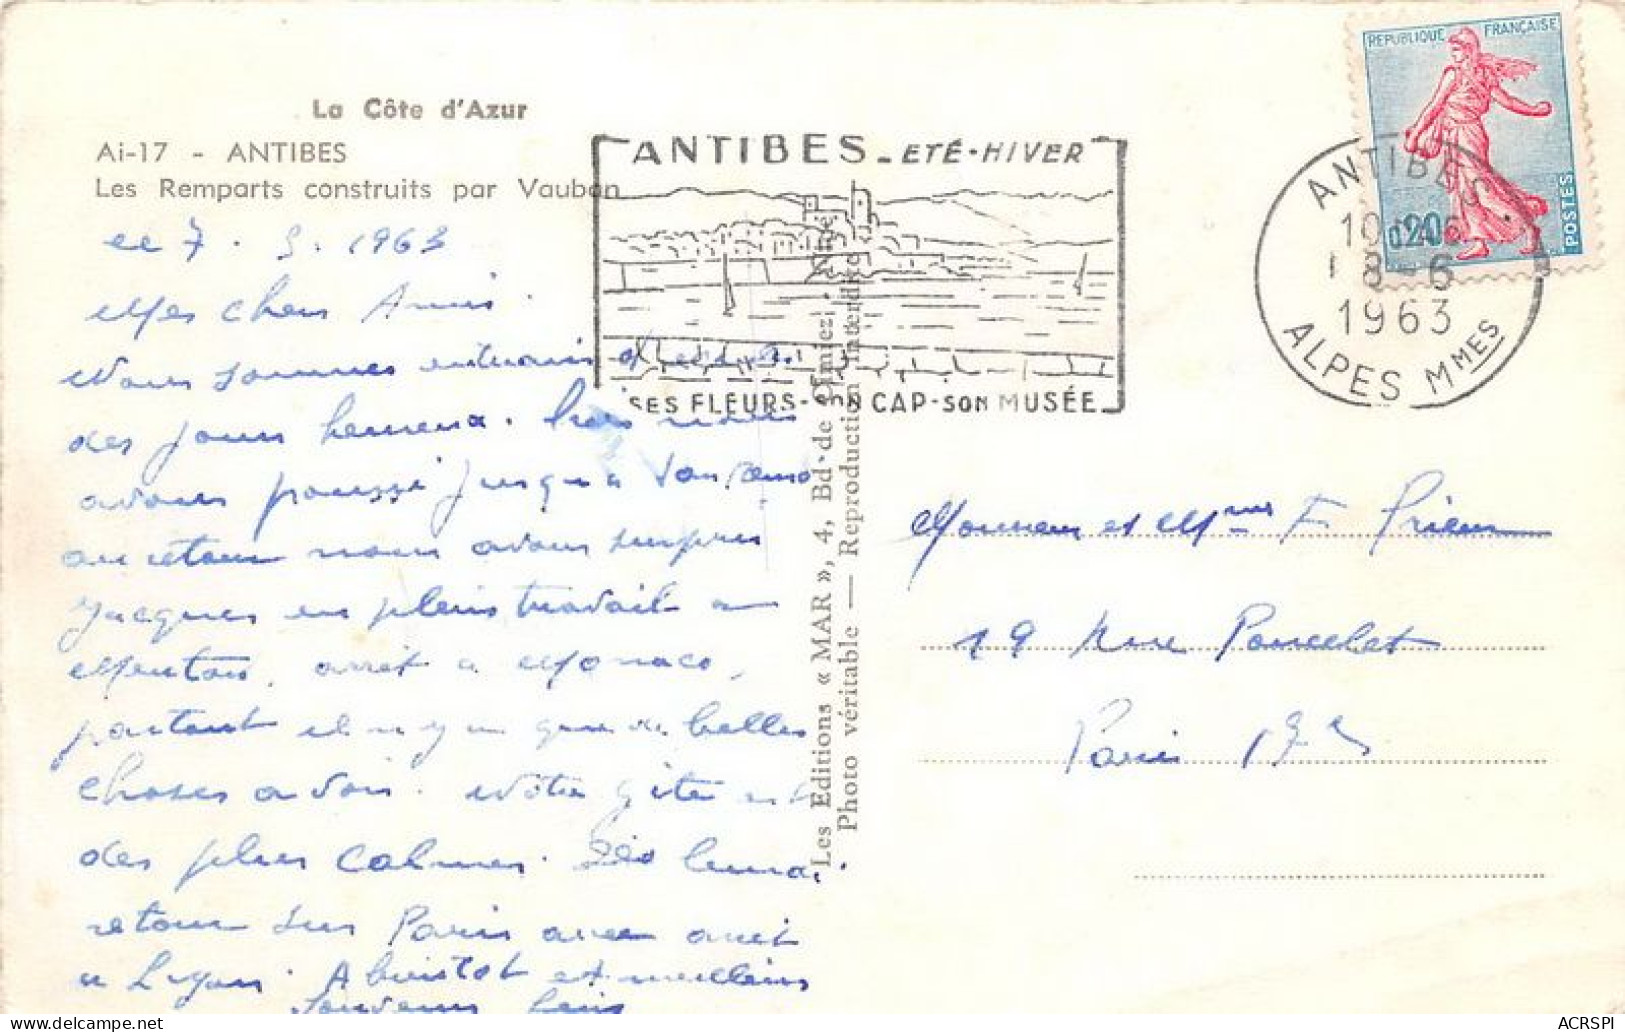 La Côte d'Azur
Ai-17 - ANTIBES
Les Remparts construits par Vauban
le 7. 1963
Mes chers Amis.
Nous sommes entrain
des jours heureux. nous
avons poussé jusqu'a San Remo
au retour nous avons surpris
Jacques en plein travail a
Menton, arrêt a Monaco,
partout il n'y a que de belles
choses a voir. Notre gite est
des plus calmes.
retour sur Paris avec arret
a Lyon. A bientot et meilleurs
souvenirs
ANTIBES - ETÉ - HIVER
SES FLEURS - SON CAP - SON MUSÉE
Les Editions « MAR », 4, Bd. de
Photo véritable — Reproduction interdite
REPUBLIQUE FRANÇAISE
0,20
POSTES
ANTIBES
8-6
1963
ALPES MMES
Monsieur et Mme F. Prieur
19 Rue Poncelet
Paris 17e
delcampe.net
ACRSPI